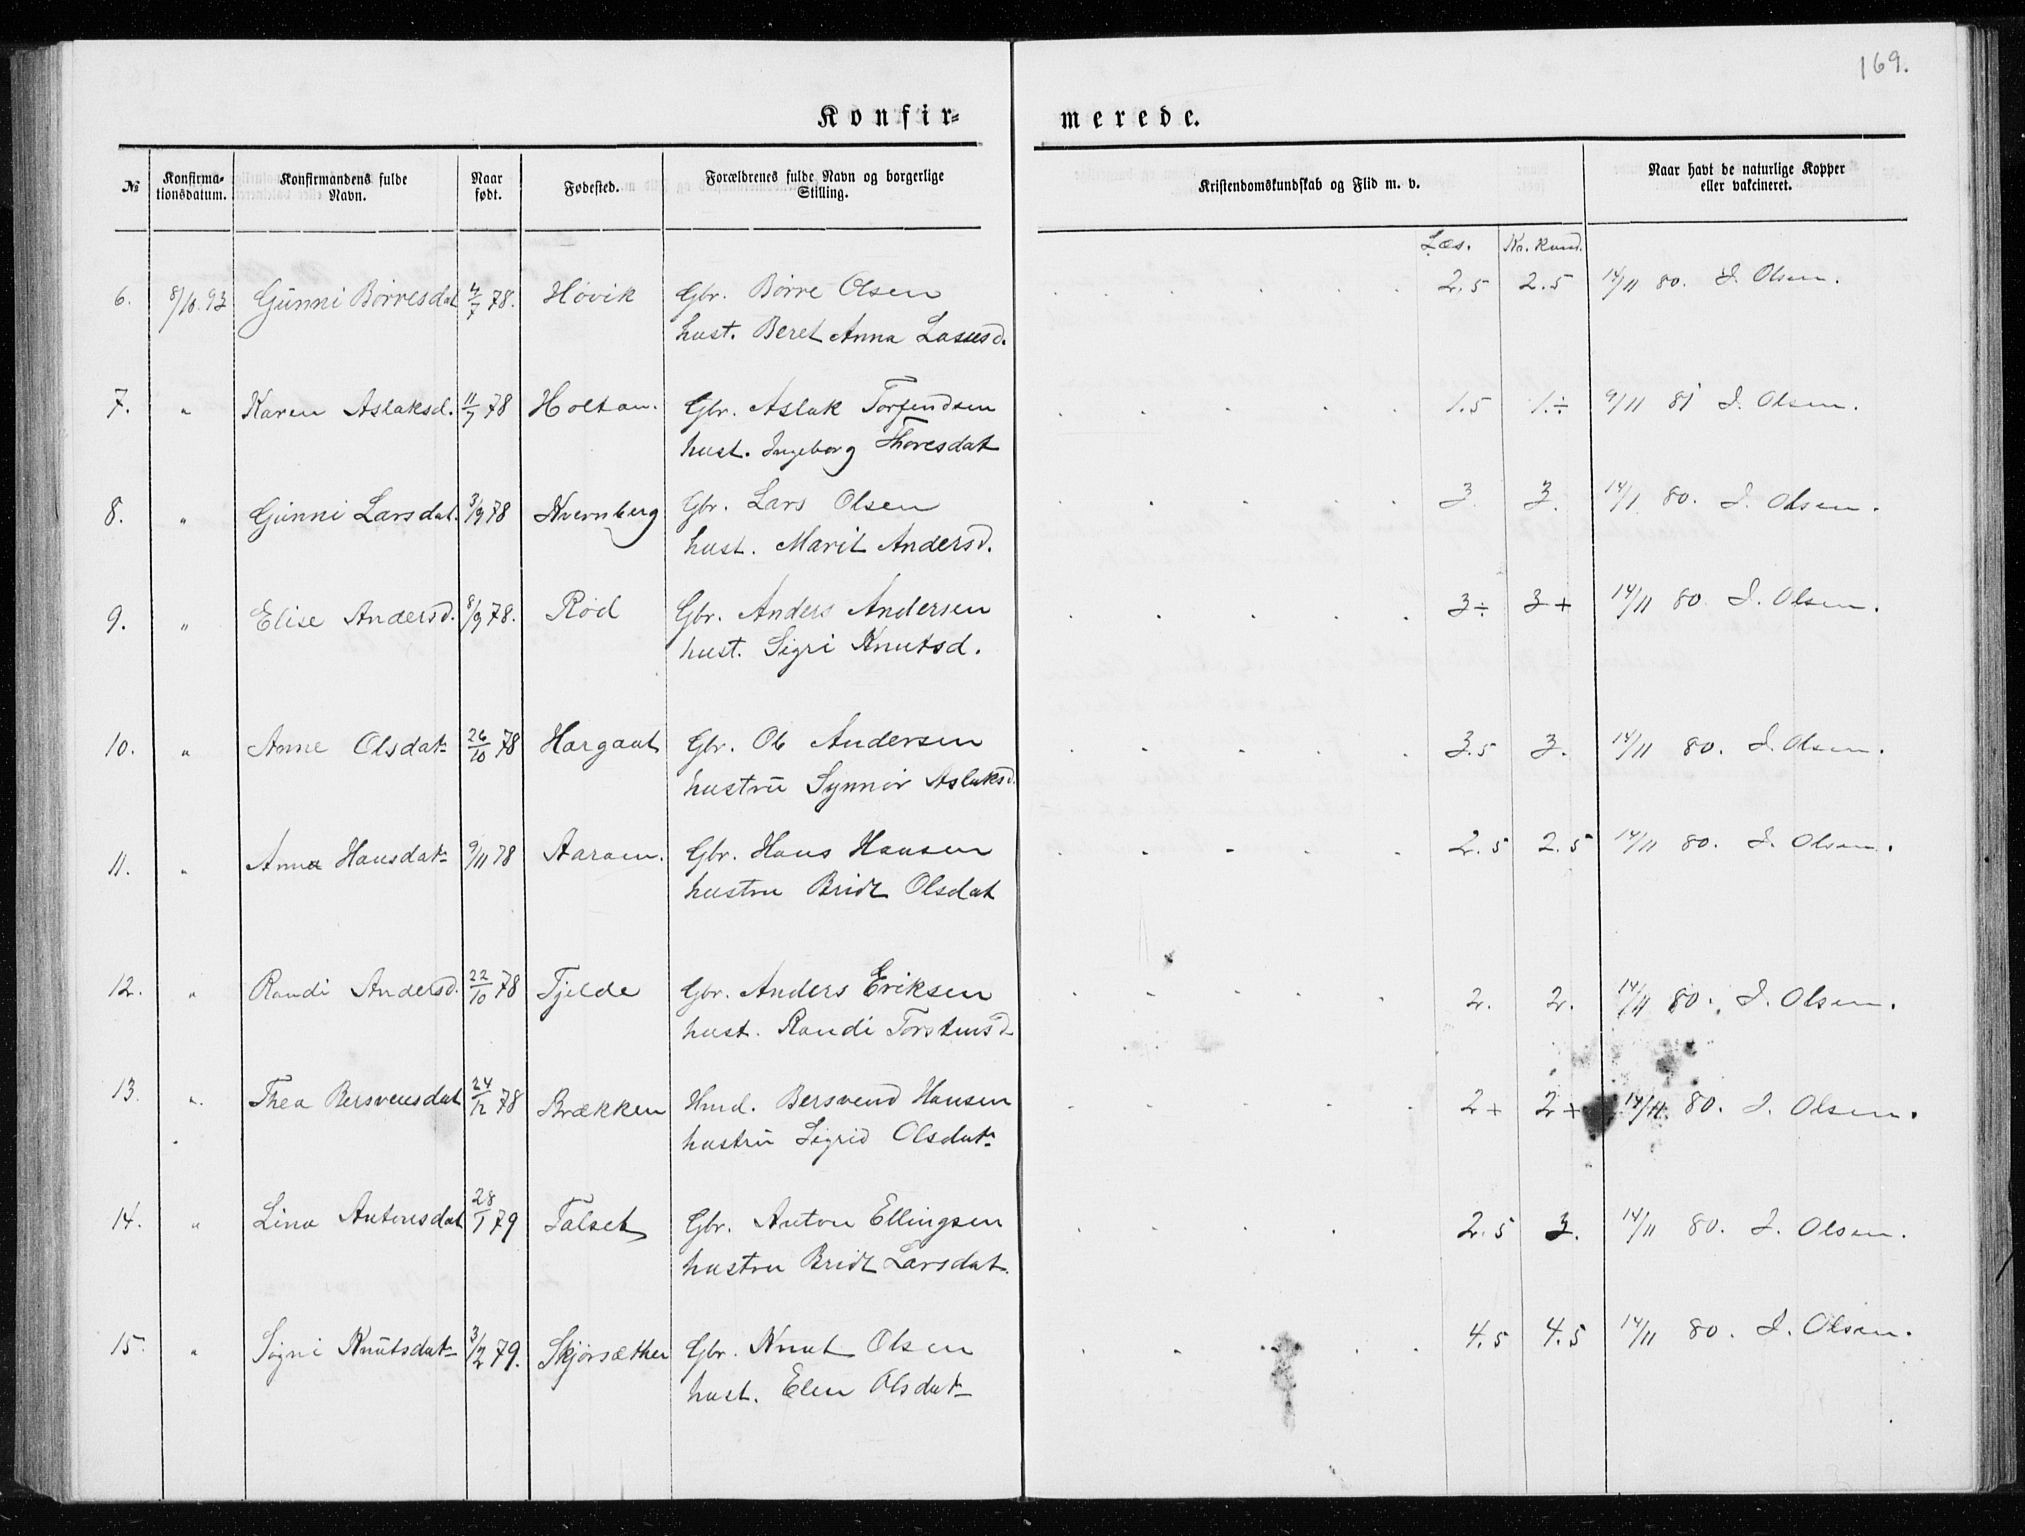 169.
Konfir= merede.
№ Konfirma-tionsdatum. Konfirmandens fulde Navn. Naar født. Fødested. Forældrenes fulde Navn og borgerlige Stilling. Kristendomskundskab og Flid m. v. Naar havt de naturlige Kopper eller vakcineret.
Læs. Kr. Kund.
6. 8/10 93 Gunni Børresdat 4/7 78. Hovik Gbr. Børre Olsen 2.5 2.5 14/11 80. J. Olsen.
hust. Beret Anna Lassesd.
7. " Karen Aslaksd. 11/7 78 Holtan. Gbr. Aslak Torfindsen 1.5 1.÷ 9/11 81 J. Olsen.
hust. Ingeborg Thoresdat
8. " Gunni Larsdat. 3/9 78 Kvernberg Gbr. Lars Olsen 3 3. 14/1 80. J. Olsen.
hust. Marit Andersd.
9. " Elise Andersd. 8/9 78. Rød Gbr. Anders Andersen 3÷ 3+ 14/11 80 J. Olsen.
hust. Sigri Knutsd.
10. " Anne Olsdat 26/10 78 Hargaut Gbr. Ole Andersen 3.5 3. 14/11 80. J. Olsen.
hustru Synnør Aslaksd.
11. " Anna Hansdat 9/11 78 Aaram. Gbr. Hans Hansen 2.5 2.5 14/11 80. J. Olsen.
hustru Bridt Olsdat
12. " Randi Andersd. 22/10 78 Tjelde Gbr. Anders Eriksen 2. 2. 14/11 80. J. Olsen.
hust. Randi Torstensd
13. " Thea Bersvensdat 24/12 78 Brækken Hmd. Bersvend Hansen 2+ 2+ 14/11. 80. J. Olsen.
hustru Sigrid Olsdat
14. " Lina Antonsdat 28/1 79 Talset Gbr. Anton Ellingsen 2.5 3. 14/11 80. J. Olsen.
hustru Bridt Larsdat.
15. " Signi Knutsdat 3/2 79. Skjørsæther Gbr. Knut Olsen 4.5 4.5 14/11 80. J. Olsen.
hust. Elen Olsdat